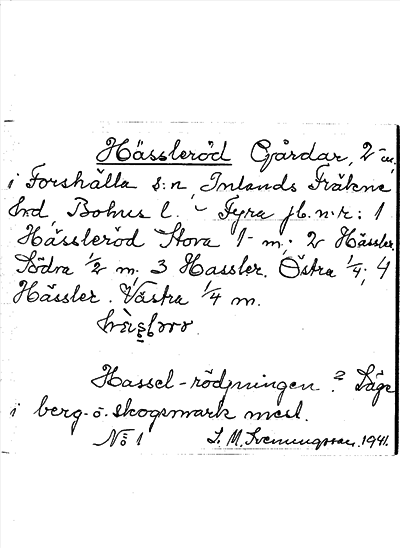 Hässleröd Gårdar, 2 m.
i Forshälla s:n, Inlands Fräkne
hrd, Bohus l. - Fyra jb.n:r: 1
Hässleröd Stora 1 - m; 2 Hässler.
Södra 1/2 m; 3 Hassler. Östra 1/4; 4
Hässler. Västra 1/4 m.
Hassel-rödjningen? Läge
i berg- o. skogsmark mest.
No 1 S. M. Svenungsson. 1941.